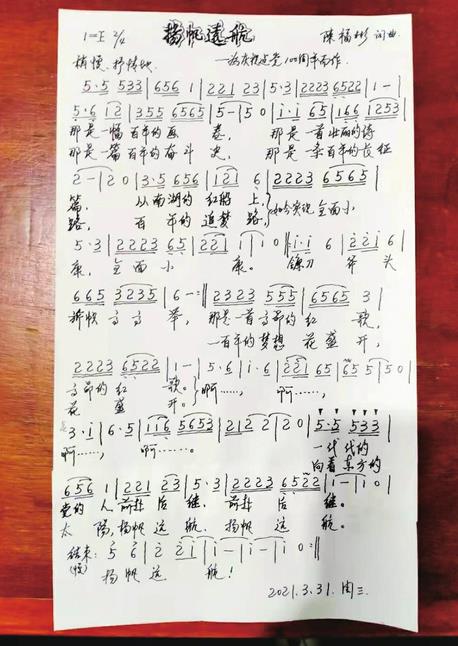 1=E 2/4 扬帆远航 陈福彬 词曲
稍慢.抒情地 —为庆祝建党100周年而作.
5·5 533 | 656 1 | 221 23 | 5·3 | 2223 6522 | 1 - |
5·6 12 | 355 6565 | 5 - | 5 0 | i·i 65 | 166 1253 |
那是一幅百年的画 卷, 那是一首壮丽的诗
那是一篇百年的奋斗 史, 那是一条百年的长征
2 - | 2 0 | 3·5 656 | 121 6 | 2223 6565 |
篇. 从南湖的红船 上, 如今实现全面小
路, 百年的追梦路,
5·3 | 2223 65 | 221 | 1 0 | i·i 6 | 2 2 1 6 |
康, 全面小 康。 镰刀 斧头
665 3235 | 6 - :|| 2323 555 | 6565 3 |
高高 举, 那是一首高昂的红 歌,
一百年的梦想 花盛 开,
2223 6522 | 1 - | 5·6 | i·6 | 221 65 | 65 5 | 5 0 |
高昂的红 歌。 啊……, 啊……,
花 盛 开。
3·i | 6·5 | 116 5653 | 212 2 | 2 0 | 5·5 533 |
啊……, 啊……。 一代代的
向着东方的
656 1 | 221 23 | 5·3 | 2223 6522 | 1 - | 1 0 |
党的人,前赴后继.前赴后 继。
太 阳,扬帆远航.扬帆远 航。
结束: 5 6 | 2 2i | i - | i - | i 0 :||
(慢) 扬帆远 航!
2021.3.31.周三.